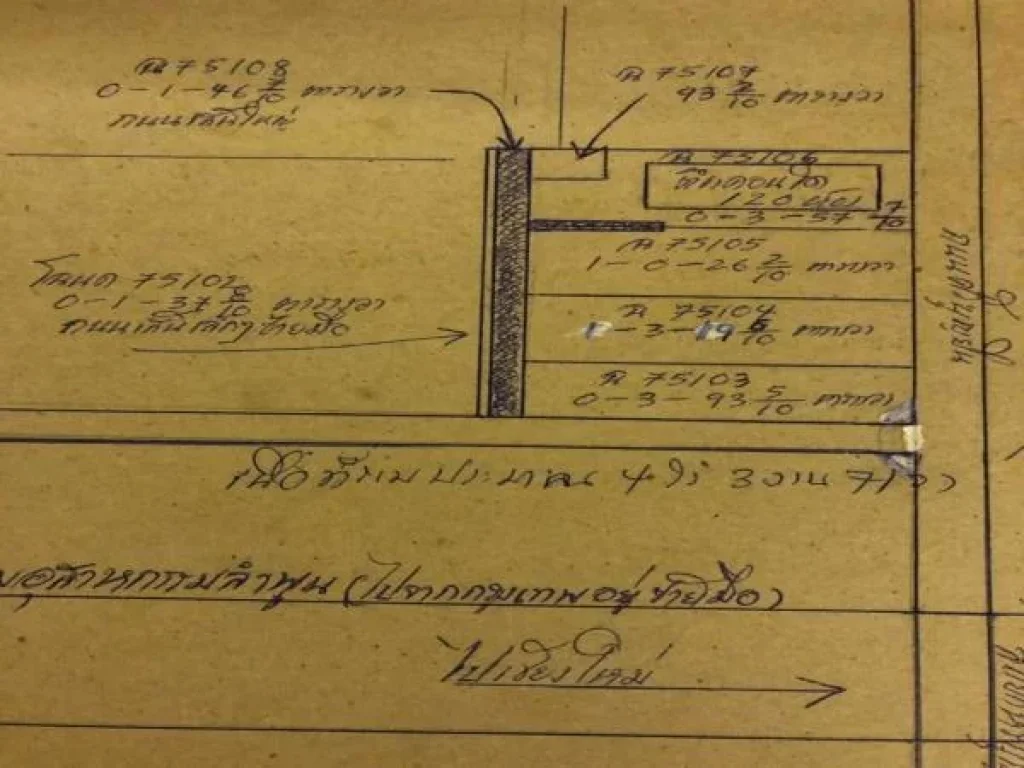 ฉ 75108
0-1-46 7/10 ตารางวา
ถนนเส้นใหญ่
ฉ 75107
93 2/10 ตารางวา
ฉ 75106
120
0-3-57 7/10
ฉ 75105
1-0-26 2/10 ตารางวา
โฉนด 75102
0-1-37 8/10 ตารางวา
ถนนเส้นเล็กๆ ซ้ายมือ
ฉ 75104
-3-19 5/10 ตารางวา
ฉ 75103
0-3-93 5/10 ตารางวา
เนื้อที่รวมประมาณ 4 ไร่ 3 งาน 71 วา
อุตสาหกรรมลำพูน (ไปจากกรุงเทพอยู่ซ้ายมือ)
ไปเชียงใหม่